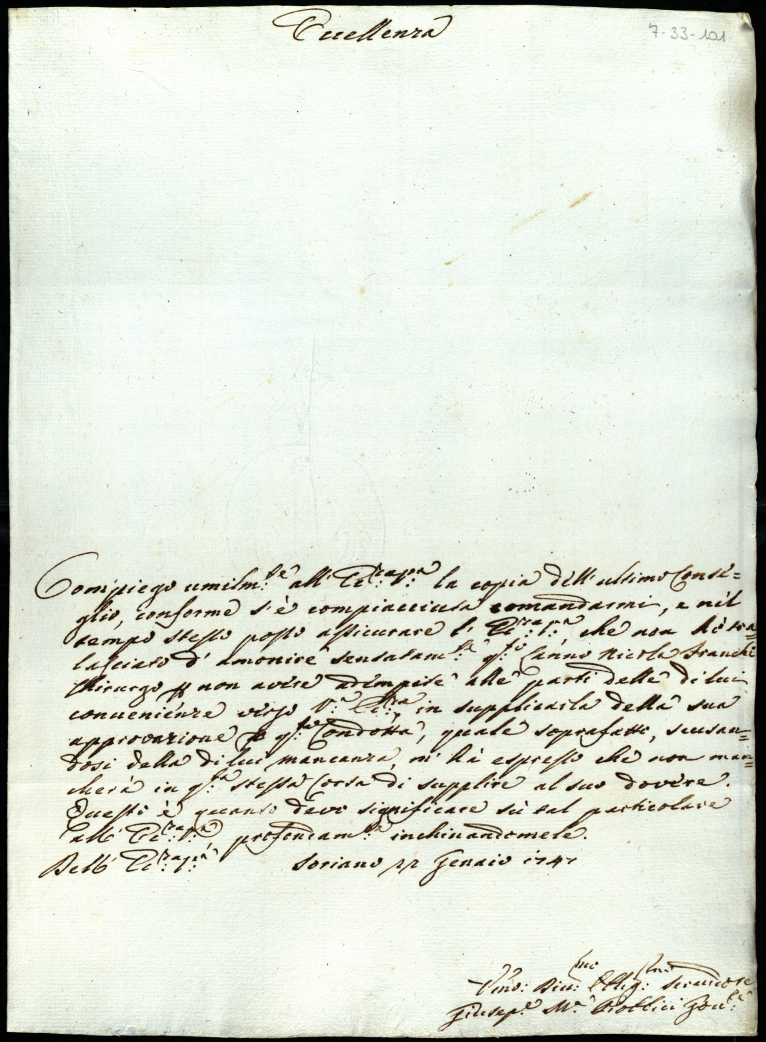 Eccellenza
7-33-101
Compiego umilm:te all' Ecc:za V:ra la copia dell' ultimo Consi=
glio, conforme s'è compiacciuta comandarmi, e nel
tempo stesso posso assicurare l' Ecc:za V:ra, che non hò tra=
lasciato d' amonire sensatam:te q:to Sanno Nicola Franchi
Chirurgo p non avere adempite alle parti delle di lui
convenienze verso V:ra Ecc:za, in supplicarla della sua
approvazione p q:ta Condotta, quale soprafatto, scusan=
dosi della di lui mancanza, m' hà espresso che non man=
cherà in q:ta stessa Corsa di supplire al suo dovere.
Questo è quanto devo significare sù tal particolare
all' Ecc:za V:ra profondam:te inchinandomele.
Dell' Ecc:za V:ra Soriano 22 Gennaio 1747
Umo: Dev:mo Obblig:mo Servitore
Giusep:e M:a